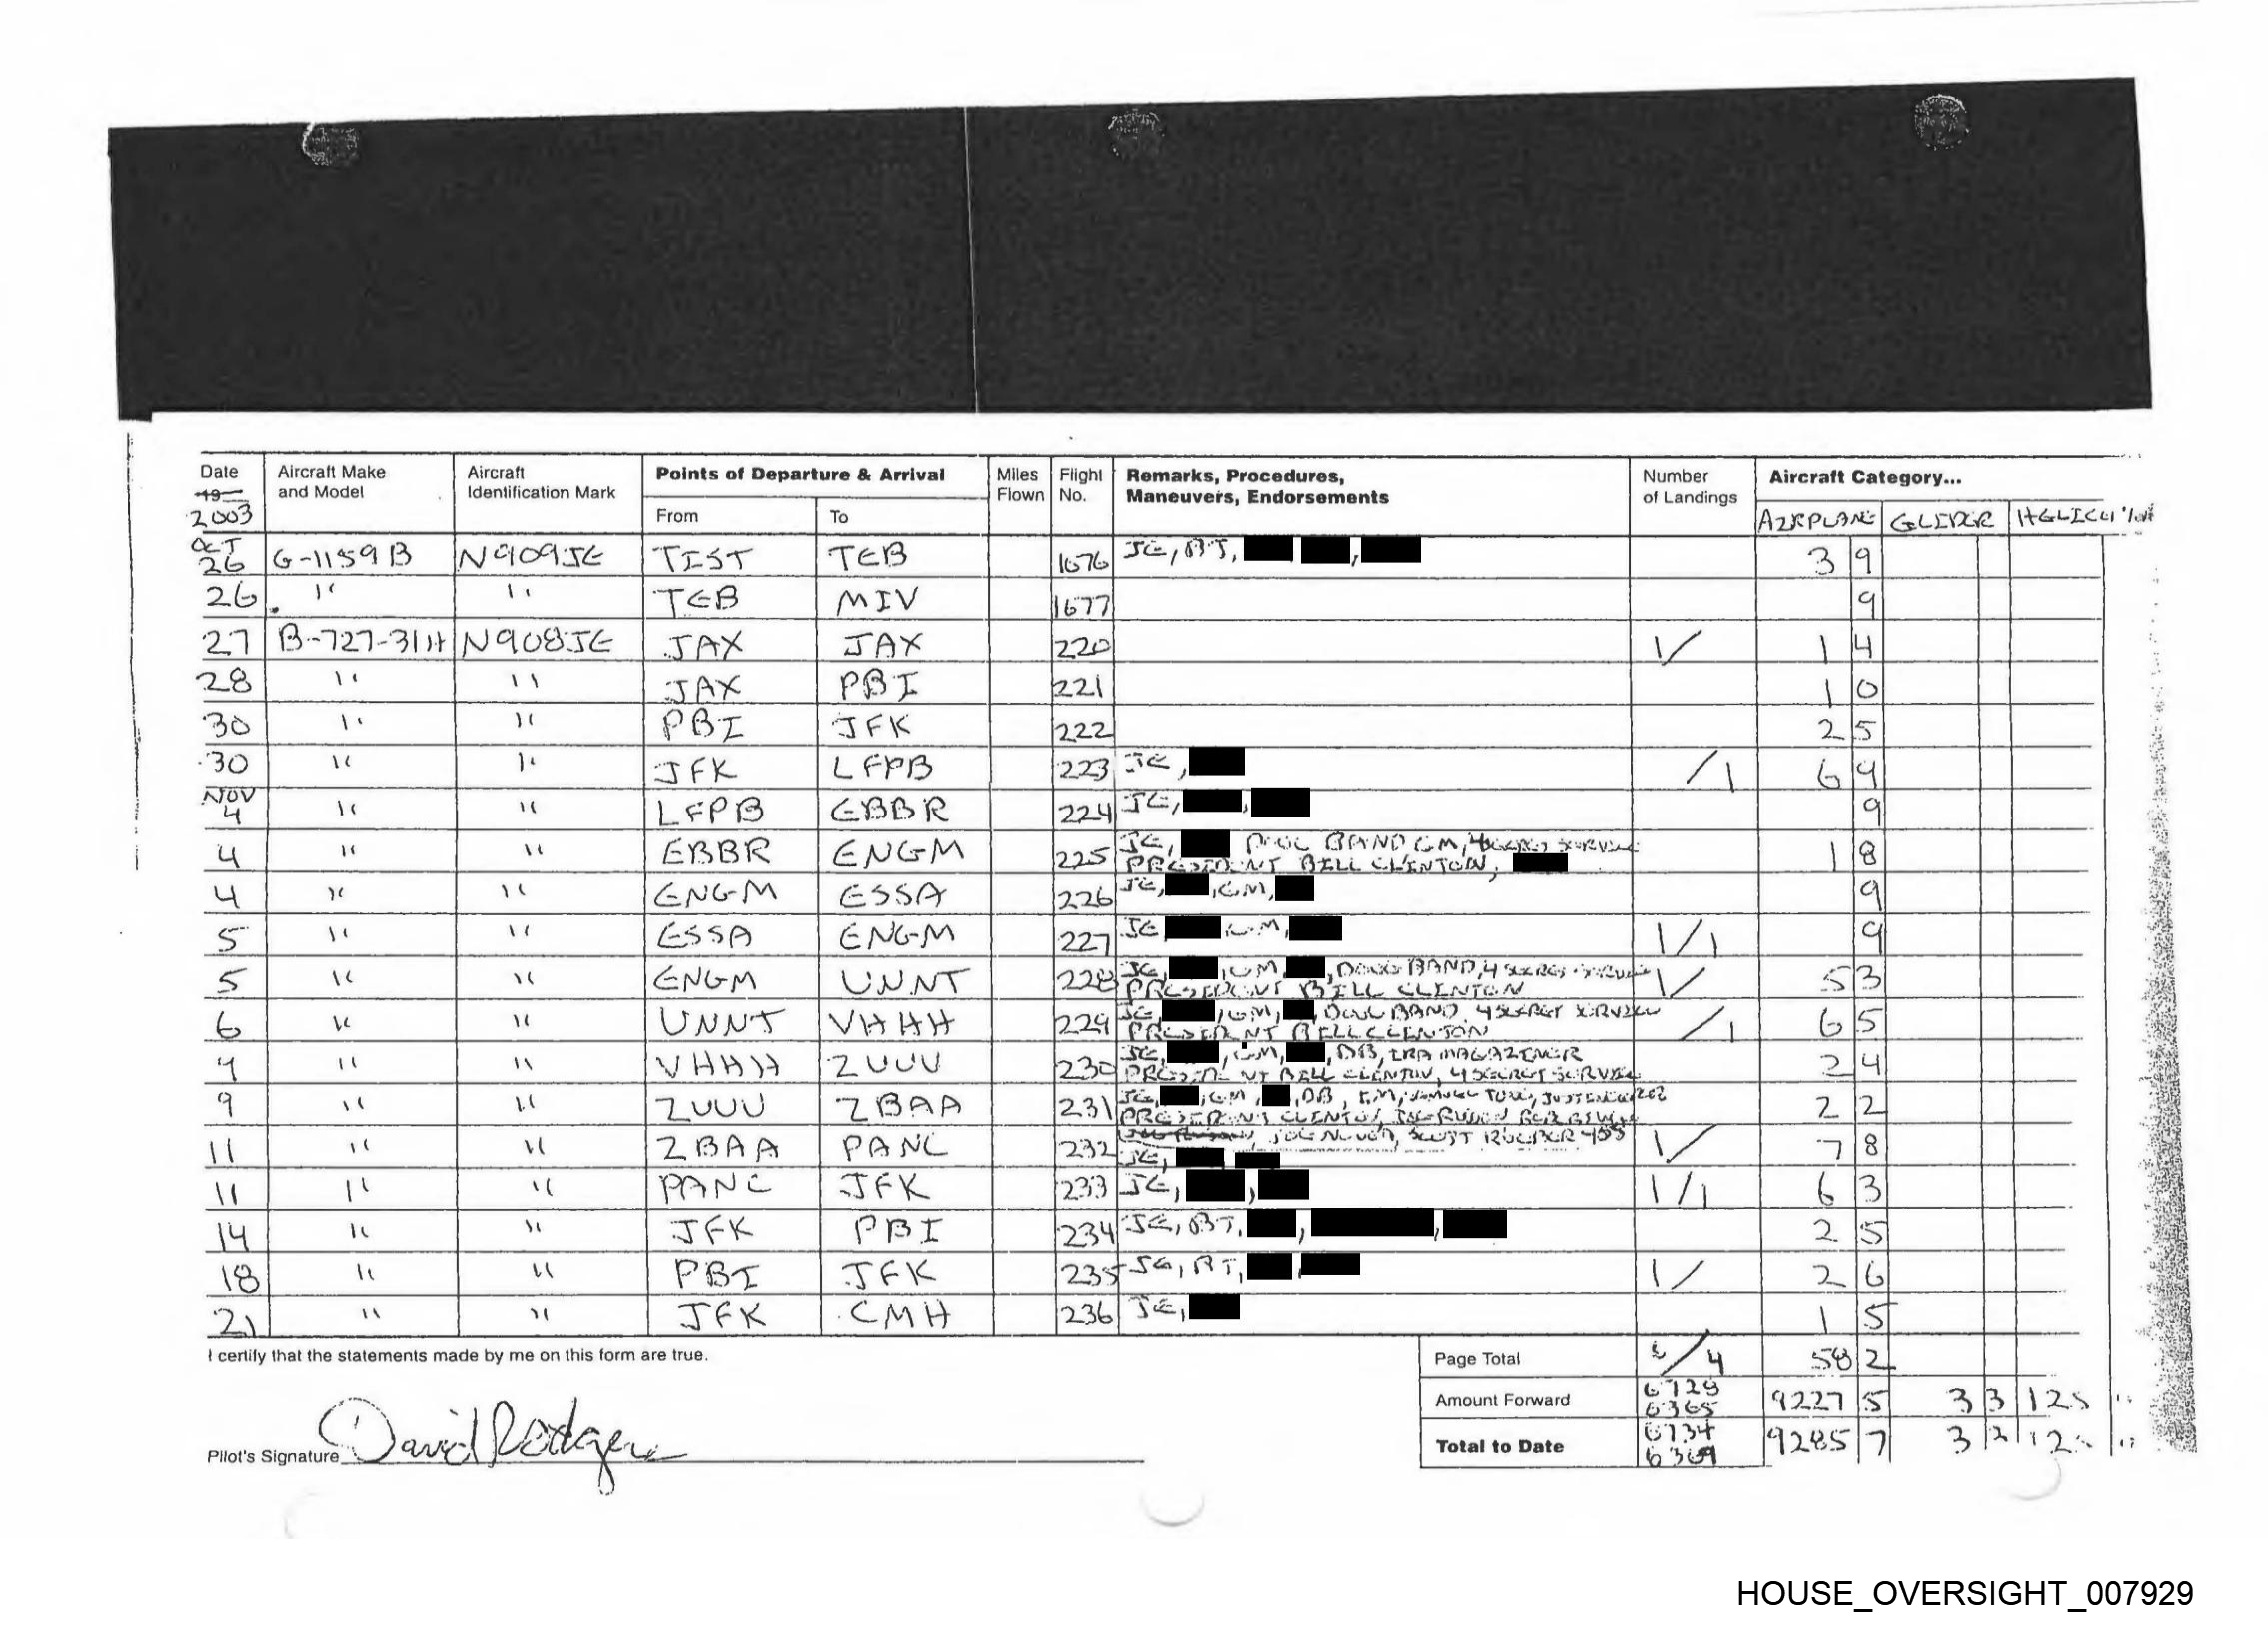 Date Aircraft Make and Model Aircraft Identification Mark Points of Departure & Arrival Miles Flown Flight No. Remarks, Procedures, Maneuvers, Endorsements Number of Landings Aircraft Category...
19
2003 From To AIRPLANE GLIDER
OCT 26 G-1159B N909JE TIST TEB 1676 JE, BT, 3 9
26 " " TEB MIV 1677 9
27 B-727-31H N908JE JAX JAX 220 1/ 1 4
28 " " JAX PBI 221 1 0
30 " " PBI JFK 222 2 5
30 " " JFK LFPB 223 JE, /1 6 9
NOV 4 " " LFPB EBBR 224 JE, , 9
4 " " EBBR ENGM 225 JE, DOUG BAND GM, 4 SECRET SERVICE 1 8
PRESIDENT BILL CLINTON,
4 " " ENGM ESSA 226 JE, ,GM, 9
5 " " ESSA ENGM 227 JE ,GM, 1/1 9
5 " " ENGM UNNT 228 JE, ,GM, , DOUG BAND, 4 SECRET SERVICE 1/ 5 3
PRESIDENT BILL CLINTON
6 " " UNNT VHHH 229 JE, ,GM, , DOUG BAND, 4 SECRET SERVICE /1 6 5
PRESIDENT BILL CLINTON
9 " " VHHH ZUUU 230 JE, ,GM, , DB, IRA MAGAZINER 2 4
PRESIDENT BILL CLINTON, 4 SECRET SERVICE
9 " " ZUUU ZBAA 231 JE, ,GM, , DB, IM, 2 2
PRESIDENT CLINTON,
11 " " ZBAA PANC 232 1/ 7 8
JE,
11 " " PANC JFK 233 JE, , 1/1 6 3
14 " " JFK PBI 234 JE, BT, , , 2 5
18 " " PBI JFK 235 JE, BT, , 1/ 2 6
21 " " JFK CMH 236 JE, 1 5
I certify that the statements made by me on this form are true. Page Total /4 58 2
Amount Forward 6729 6365 9227 5 3 3 125
Pilot's Signature David Rodgers Total to Date 6734 6369 9285 7 3
HOUSE_OVERSIGHT_007929